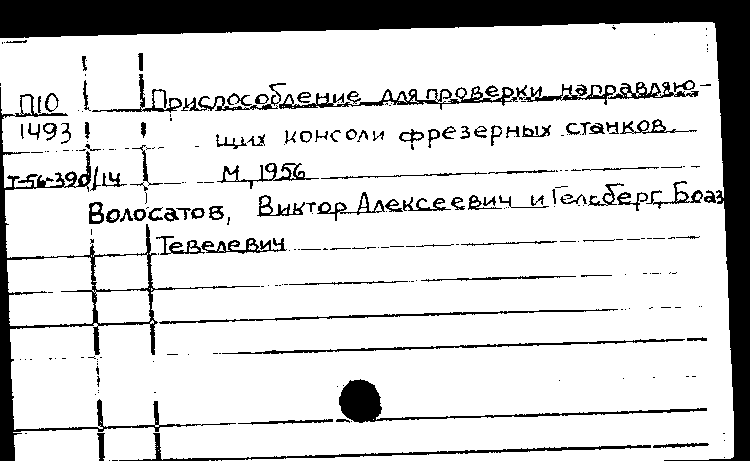 П10 Приспособление для проверки направляю-
1493 щих консоли фрезерных станков.
Т-56-390/14 М., 1956
Волосатов, Виктор Алексеевич и Гельберг, Боаз
Тевелевич